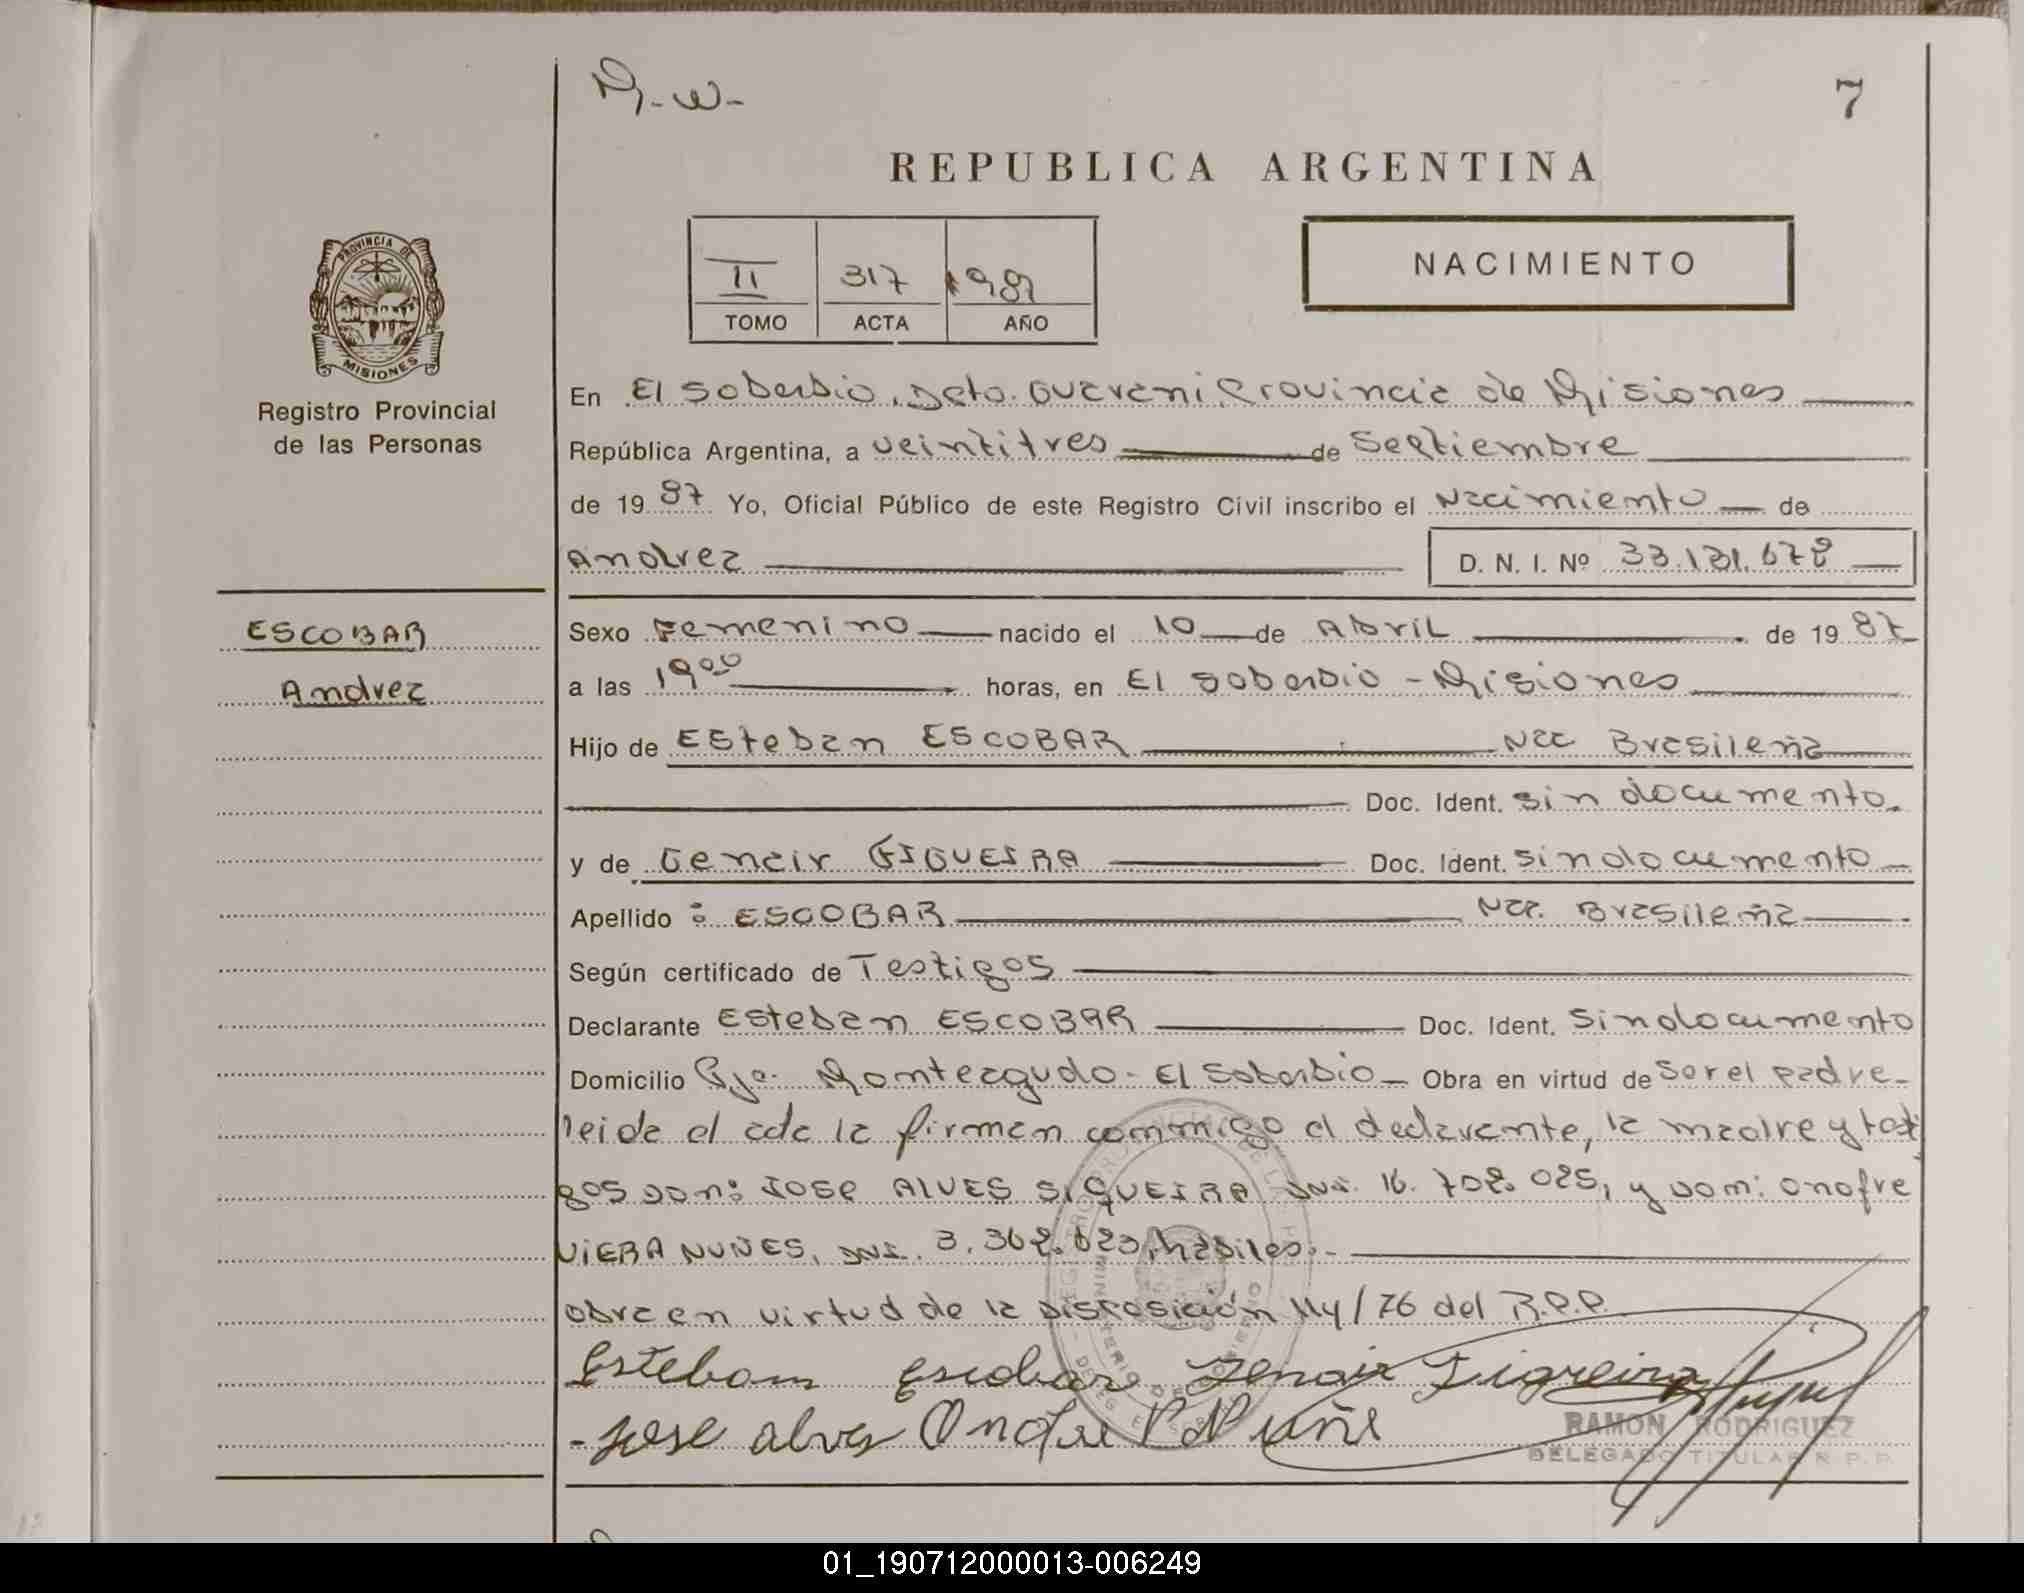 M.W.-
7
REPUBLICA ARGENTINA
II 317 1987
TOMO ACTA AÑO
NACIMIENTO
PROVINCIA DE
MISIONES
Registro Provincial
de las Personas
En El soberbio, Dcto. Guarani Provincia de Misiones
República Argentina, a veintitres de Septiembre
de 19 87 Yo, Oficial Público de este Registro Civil inscribo el Nacimiento de
Andrea
D. N. I. Nº 33.131.678
ESCOBAR
Andrea
Sexo Femenino nacido el 10 de Abril de 19 87
a las 19 00 horas, en El soberbio - Misiones
Hijo de Esteban ESCOBAR Nac Brasileña
Doc. Ident. sin documento.
y de Genair FIGUEIRA Doc. Ident. sin documento
Apellido : ESCOBAR Nac. Brasileña
Según certificado de Testigos
Declarante Esteban ESCOBAR Doc. Ident. sin documento
Domicilio Pje. Monteagudo - El soberbio Obra en virtud de Ser el padre-
leida el acta la firman conmigo el declarante, la madre y testi
gos Don: JOSE ALVES SIQUEIRA DNI. 16. 702. 025, y Dom: onofre
VIERA NUÑES, DNI. 3. 362. 623, habiles.-
obra en virtud de la Disposición 114/76 del R.P.P.
Estebam Escobar Jenair Figreira
-Jose alves Onofre V Nuñe
RAMON RODRIGUEZ
DELEGADO TITULAR R. P. P.
01_190712000013-006249